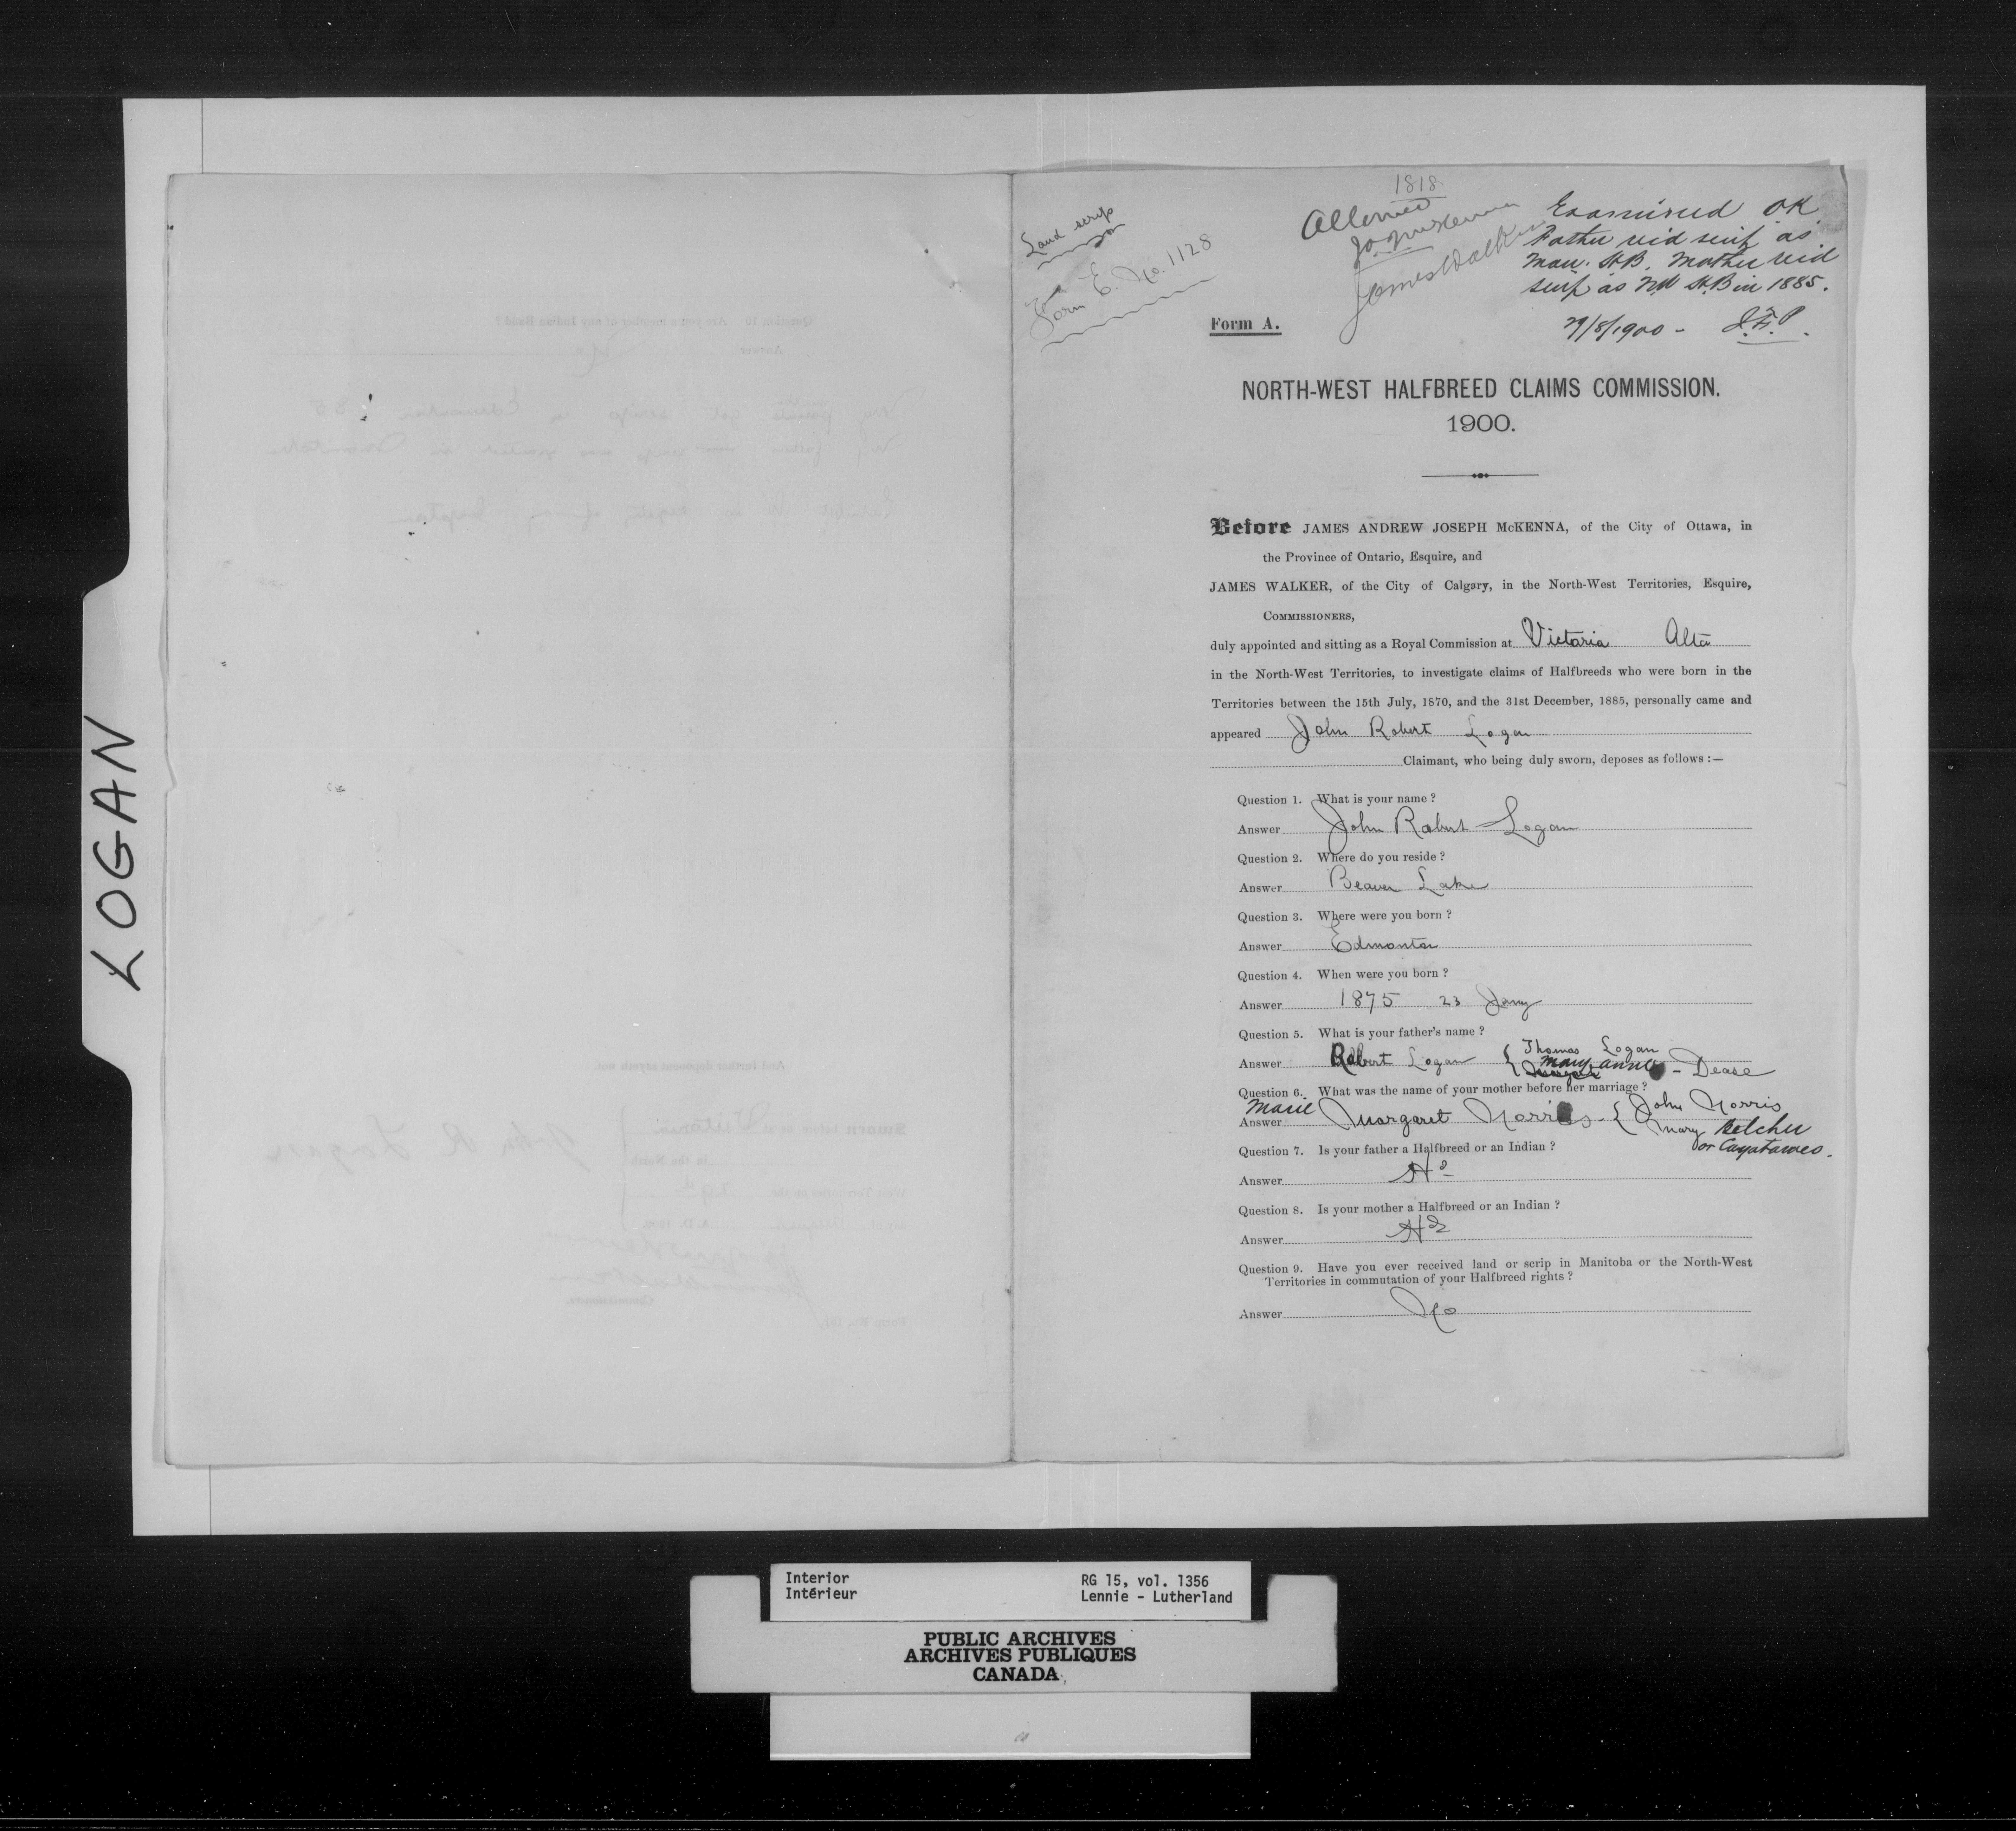 LOGAN
Land scrip
Form E. No. 1128
1818
Allowed
James Walker
Examined OK
Father rec'd scrip as
Man. H.B. Mother rec'd
scrip as NW H.B in 1885.
29/8/1900 - J.F.P.
Form A.
NORTH-WEST HALFBREED CLAIMS COMMISSION.
1900.
Before JAMES ANDREW JOSEPH McKENNA, of the City of Ottawa, in
the Province of Ontario, Esquire, and
JAMES WALKER, of the City of Calgary, in the North-West Territories, Esquire,
COMMISSIONERS,
duly appointed and sitting as a Royal Commission at Victoria Alta
in the North-West Territories, to investigate claims of Halfbreeds who were born in the
Territories between the 15th July, 1870, and the 31st December, 1885, personally came and
appeared John Robert Logan
Claimant, who being duly sworn, deposes as follows :—
Question 1. What is your name ?
Answer John Robert Logan
Question 2. Where do you reside ?
Answer Beaver Lake
Question 3. Where were you born ?
Answer Edmonton
Question 4. When were you born ?
Answer 1875 23 Jany
Question 5. What is your father's name ?
Thomas Logan
Answer Robert Logan { Mary Anne - Dease
Question 6. What was the name of your mother before her marriage ?
Marie John Norris
Answer Margaret Norris - { Mary Belcher
Question 7. Is your father a Halfbreed or an Indian ? or
Answer HB
Question 8. Is your mother a Halfbreed or an Indian ?
Answer HB
Question 9. Have you ever received land or scrip in Manitoba or the North-West
Territories in commutation of your Halfbreed rights ?
Answer No
Interior
Intérieur
RG 15, vol. 1356
Lennie - Lutherland
PUBLIC ARCHIVES
ARCHIVES PUBLIQUES
CANADA